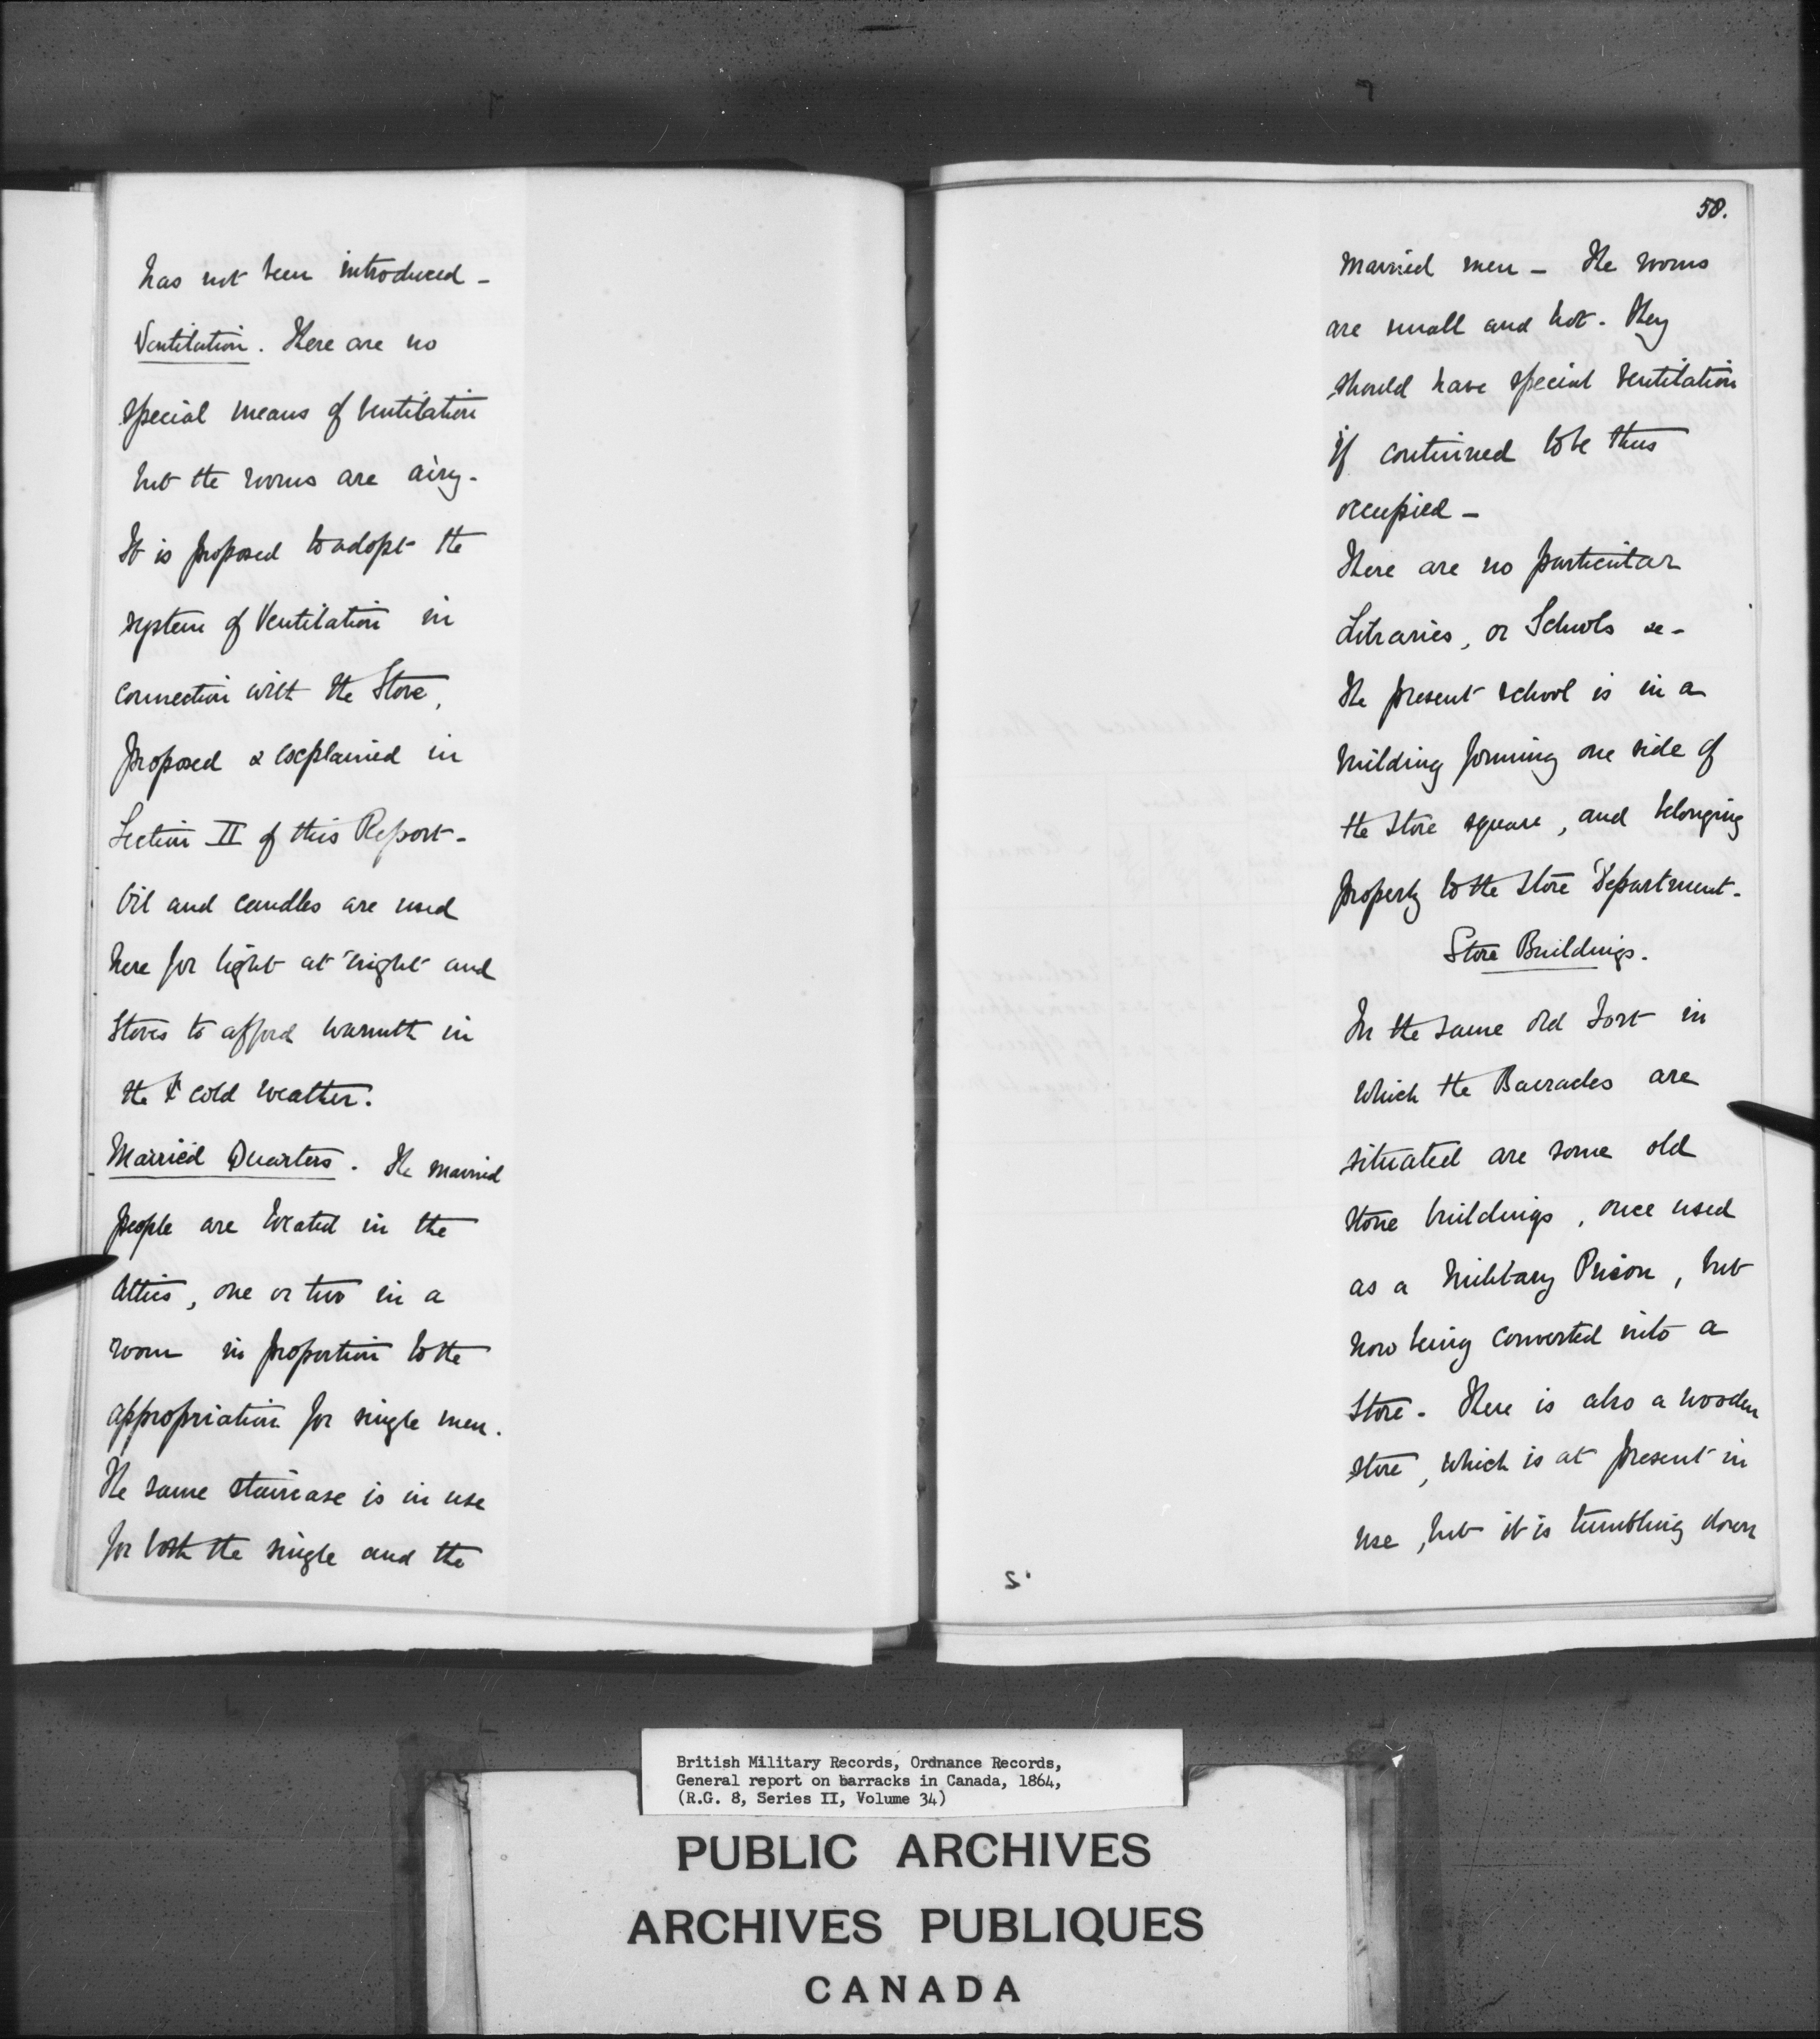 has not been introduced -
Ventilation. There are no
special means of Ventilation
but the rooms are airy.
It is proposed to adopt the
system of Ventilation in
connection with the Stove,
proposed & explained in
Section II of this Report -
Oil and candles are used
here for light at night and
Stoves to afford warmth in
the cold weather.
Married Quarters. The married
people are located in the
attics, one or two in a
room in proportion to the
appropriation for single men.
The same staircase is in use
for both the single and the
58.
married men - The rooms
are small and hot. They
should have special ventilation
if continued to be thus
occupied -
There are no particular
Libraries, or Schools &c -
The present school is in a
building forming one side of
the Store square, and belonging
property to the Store Department.
Store Buildings.
In the same old Fort in
which the Barracks are
situated are some old
stone buildings, once used
as a Military Prison, but
now being converted into a
Store. There is also a wooden
store, which is at present in
use, but it is tumbling down
British Military Records, Ordnance Records,
General report on barracks in Canada, 1864,
(R.G. 8, Series II, Volume 34)
PUBLIC ARCHIVES
ARCHIVES PUBLIQUES
CANADA